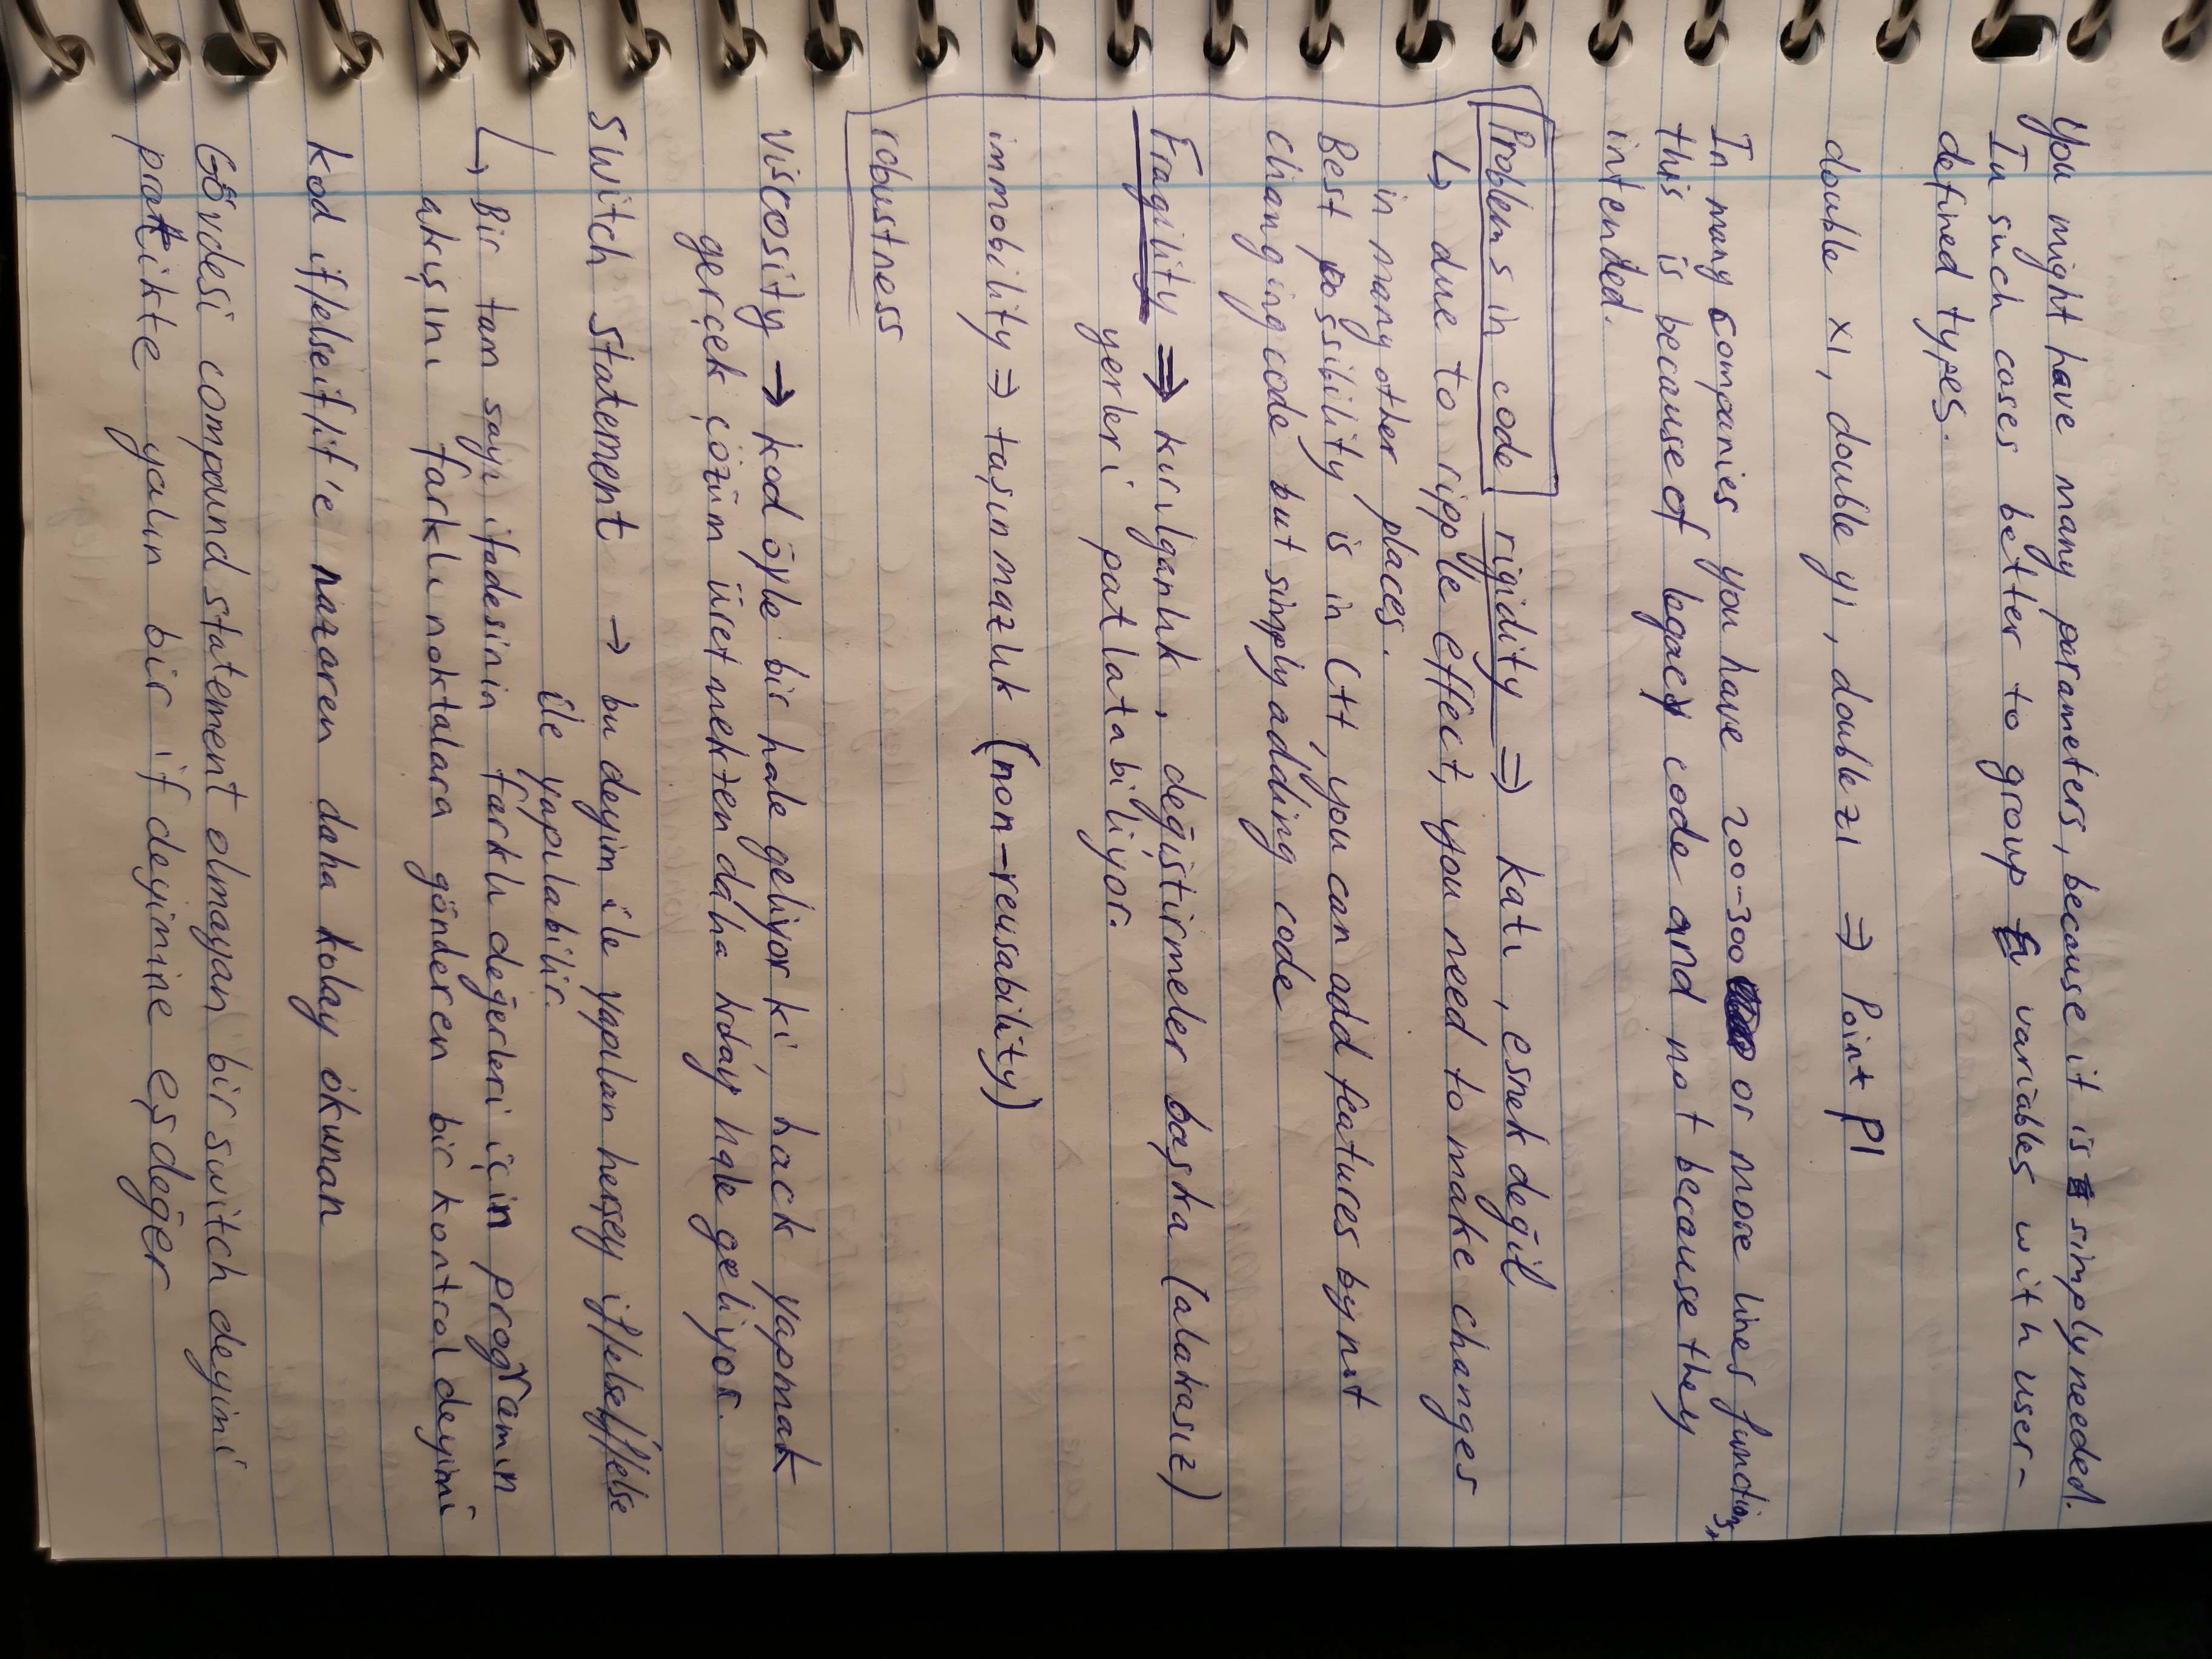 You might have many parameters, because it is simply needed.
In such cases better to group variables with user-
defined types.
double x1, double y1, double z1 ⇒ Point P1
In many companies you have 200-300 or more lines functions,
this is because of legacy code and not because they
intended.
Problems in code rigidity ⇒ katı, esnek değil
↳ due to ripple effect, you need to make changes
in many other places.
Best possibility is in C++, you can add features by not
changing code but simply adding code
Fragility ⇒ kırılganlık, değiştirmeler başka (alakasız)
yerleri patlatabiliyor.
immobility ⇒ taşınmazlık (non-reusability)
robustness
viscosity → kod öyle bir hale geliyor ki, hack yapmak
gerçek çözüm üretmekten daha kolay hale geliyor.
switch statement → bu deyim ile yapılan herşey if/elseif/else
ile yapılabilir.
↳ Bir tam sayı ifadesinin farklı değerleri için programın
akışını farklı noktalara gönderen bir kontrol deyimi
kod if/elseif/if'e nazaren daha kolay okunan
Gövdesi compound statement olmayan bir switch deyimi
pratikte yalın bir if deyimine eşdeğer